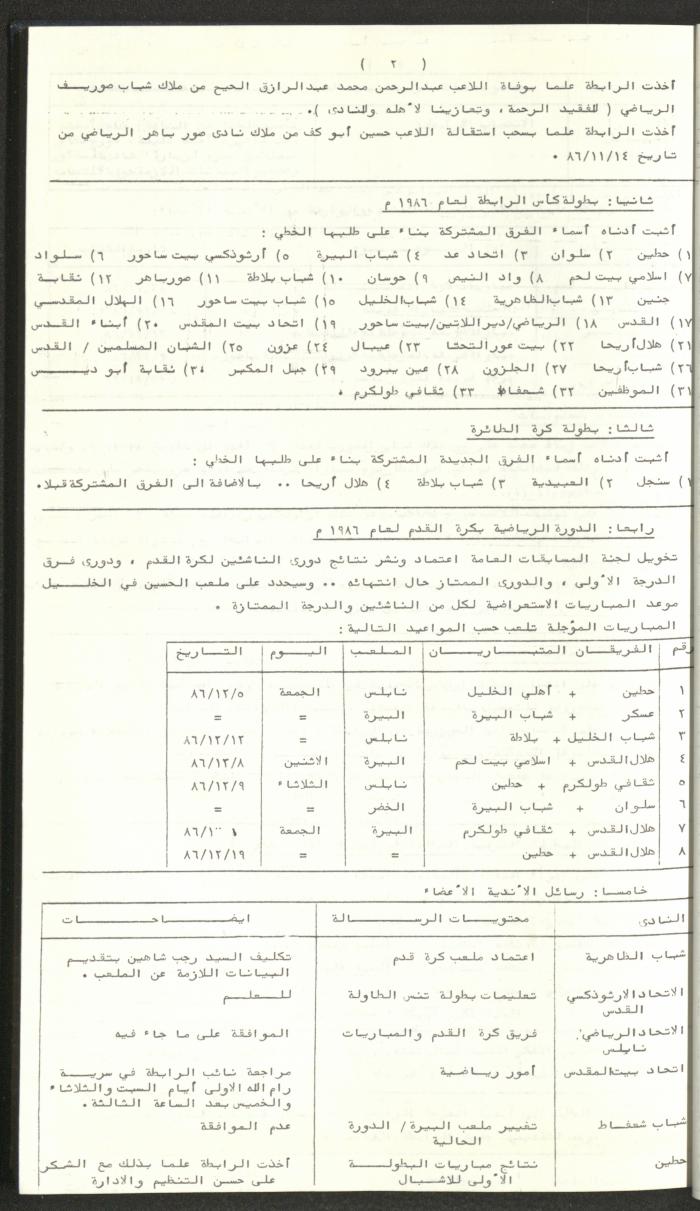 ( ٢ )
أخذت الرابطة علما بوفاة اللاعب عبدالرحمن محمد عبدالرازق الحيح من ملاك شباب صوريف
الرياضي ( للفقيد الرحمة ، وتعازينا لأهله وللنادى ).
أخذت الرابطة علما بسحب استقالة اللاعب حسين أبو كف من ملاك نادى صور باهر الرياضي من
تاريخ ٨٦/١١/١٤ .
ثانيا: بطولة كأس الرابطة لعام ١٩٨٦ م
أثبت أدناه أسماء الفرق المشتركة بناء على طلبها الخطي :
١) حطين ٢) سلوان ٣) اتحاد عد ٤) شباب البيرة ٥) أرثوذكسي بيت ساحور ٦) سلواد
٧) اسلامي بيت لحم ٨) واد النيص ٩) حوسان ١٠) شباب بلاطة ١١) صورباهر ١٢) نقابة
جنين ١٣) شباب الظاهرية ١٤) شباب الخليل ١٥) شباب بيت ساحور ١٦) الهلال المقدسي
١٧) القدس ١٨) الرياضي/ديراللاتين/بيت ساحور ١٩) اتحاد بيت المقدس ٢٠) أبناء القدس
٢١) هلال أريحا ٢٢) بيت عور التحتا ٢٣) عيبال ٢٤) عزون ٢٥) الشبان المسلمين / القدس
٢٦) شباب أريحا ٢٧) الجلزون ٢٨) عين يبرود ٢٩) جبل المكبر ٣٠) نقابة أبو ديس
٣١) الموظفين ٣٢) شعفاط ٣٣) ثقافي طولكرم .
ثالثا: بطولة كرة الطائرة
أثبت أدناه أسماء الفرق الجديدة المشتركة بناء على طلبها الخطي :
١) سنجل ٢) العبيدية ٣) شباب بلاطة ٤) هلال أريحا .. بالاضافة الى الفرق المشتركة قبلا.
رابعا: الدورة الرياضية بكرة القدم لعام ١٩٨٦ م
تخويل لجنة المسابقات العامة اعتماد ونشر نتائج دورى الناشئين لكرة القدم ، ودورى فرق
الدرجة الأولى ، والدورى الممتاز حال انتهائه .. وسيحدد على ملعب الحسين في الخليل
موعد المباريات الاستعراضية لكل من الناشئين والدرجة الممتازة .
المباريات المؤجلة تلعب حسب المواعيد التالية:
رقم الفريقان المتباريان الملعب اليوم التاريخ
١ حطين + أهلي الخليل نابلس الجمعة ٨٦/١٢/٥
٢ عسكر + شباب البيرة البيرة = =
٣ شباب الخليل + بلاطة نابلس = ٨٦/١٢/١٢
٤ هلال القدس + اسلامي بيت لحم البيرة الاثنين ٨٦/١٢/٨
٥ ثقافي طولكرم + حطين نابلس الثلاثاء ٨٦/١٢/٩
٦ سلوان + شباب البيرة الخضر = =
٧ هلال القدس + ثقافي طولكرم البيرة الجمعة
٨ هلال القدس + حطين = = ٨٦/١٢/١٩
خامسا: رسائل الأندية الأعضاء
النادى محتويات الرسالة ايضاحات
شباب الظاهرية اعتماد ملعب كرة قدم تكليف السيد رجب شاهين بتقديم
البيانات اللازمة عن الملعب .
الاتحاد الارثوذكسي تعليمات بطولة تنس الطاولة للعلم
القدس
الاتحاد الرياضي. فريق كرة القدم والمباريات الموافقة على ما جاء فيه
نابلس
اتحاد بيت المقدس أمور رياضية مراجعة نائب الرابطة في سرية
رام الله الاولى أيام السبت والثلاثاء
والخميس بعد الساعة الثالثة.
شباب شعفاط تغيير ملعب البيرة/ الدورة عدم الموافقة
الحالية
حطين نتائج مباريات البطولة أخذت الرابطة علما بذلك مع الشكر
الأولى للاشبال على حسن التنظيم والادارة